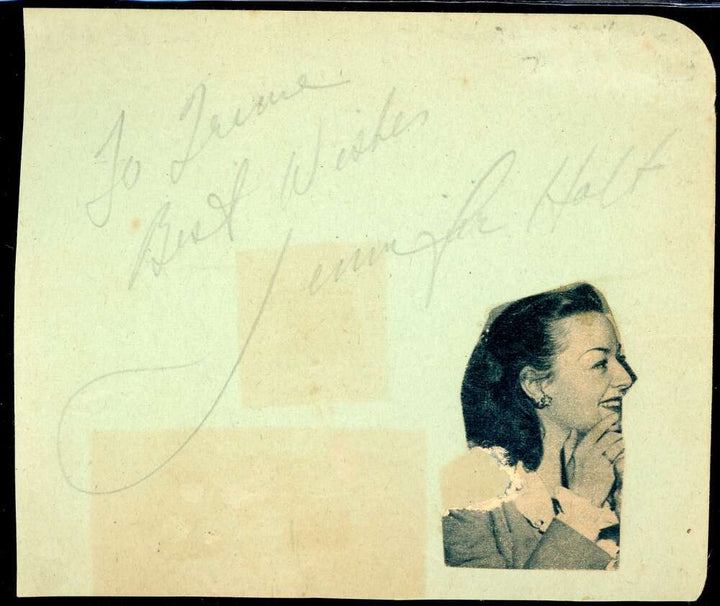 To
Best Wishes
Jennifer Holt